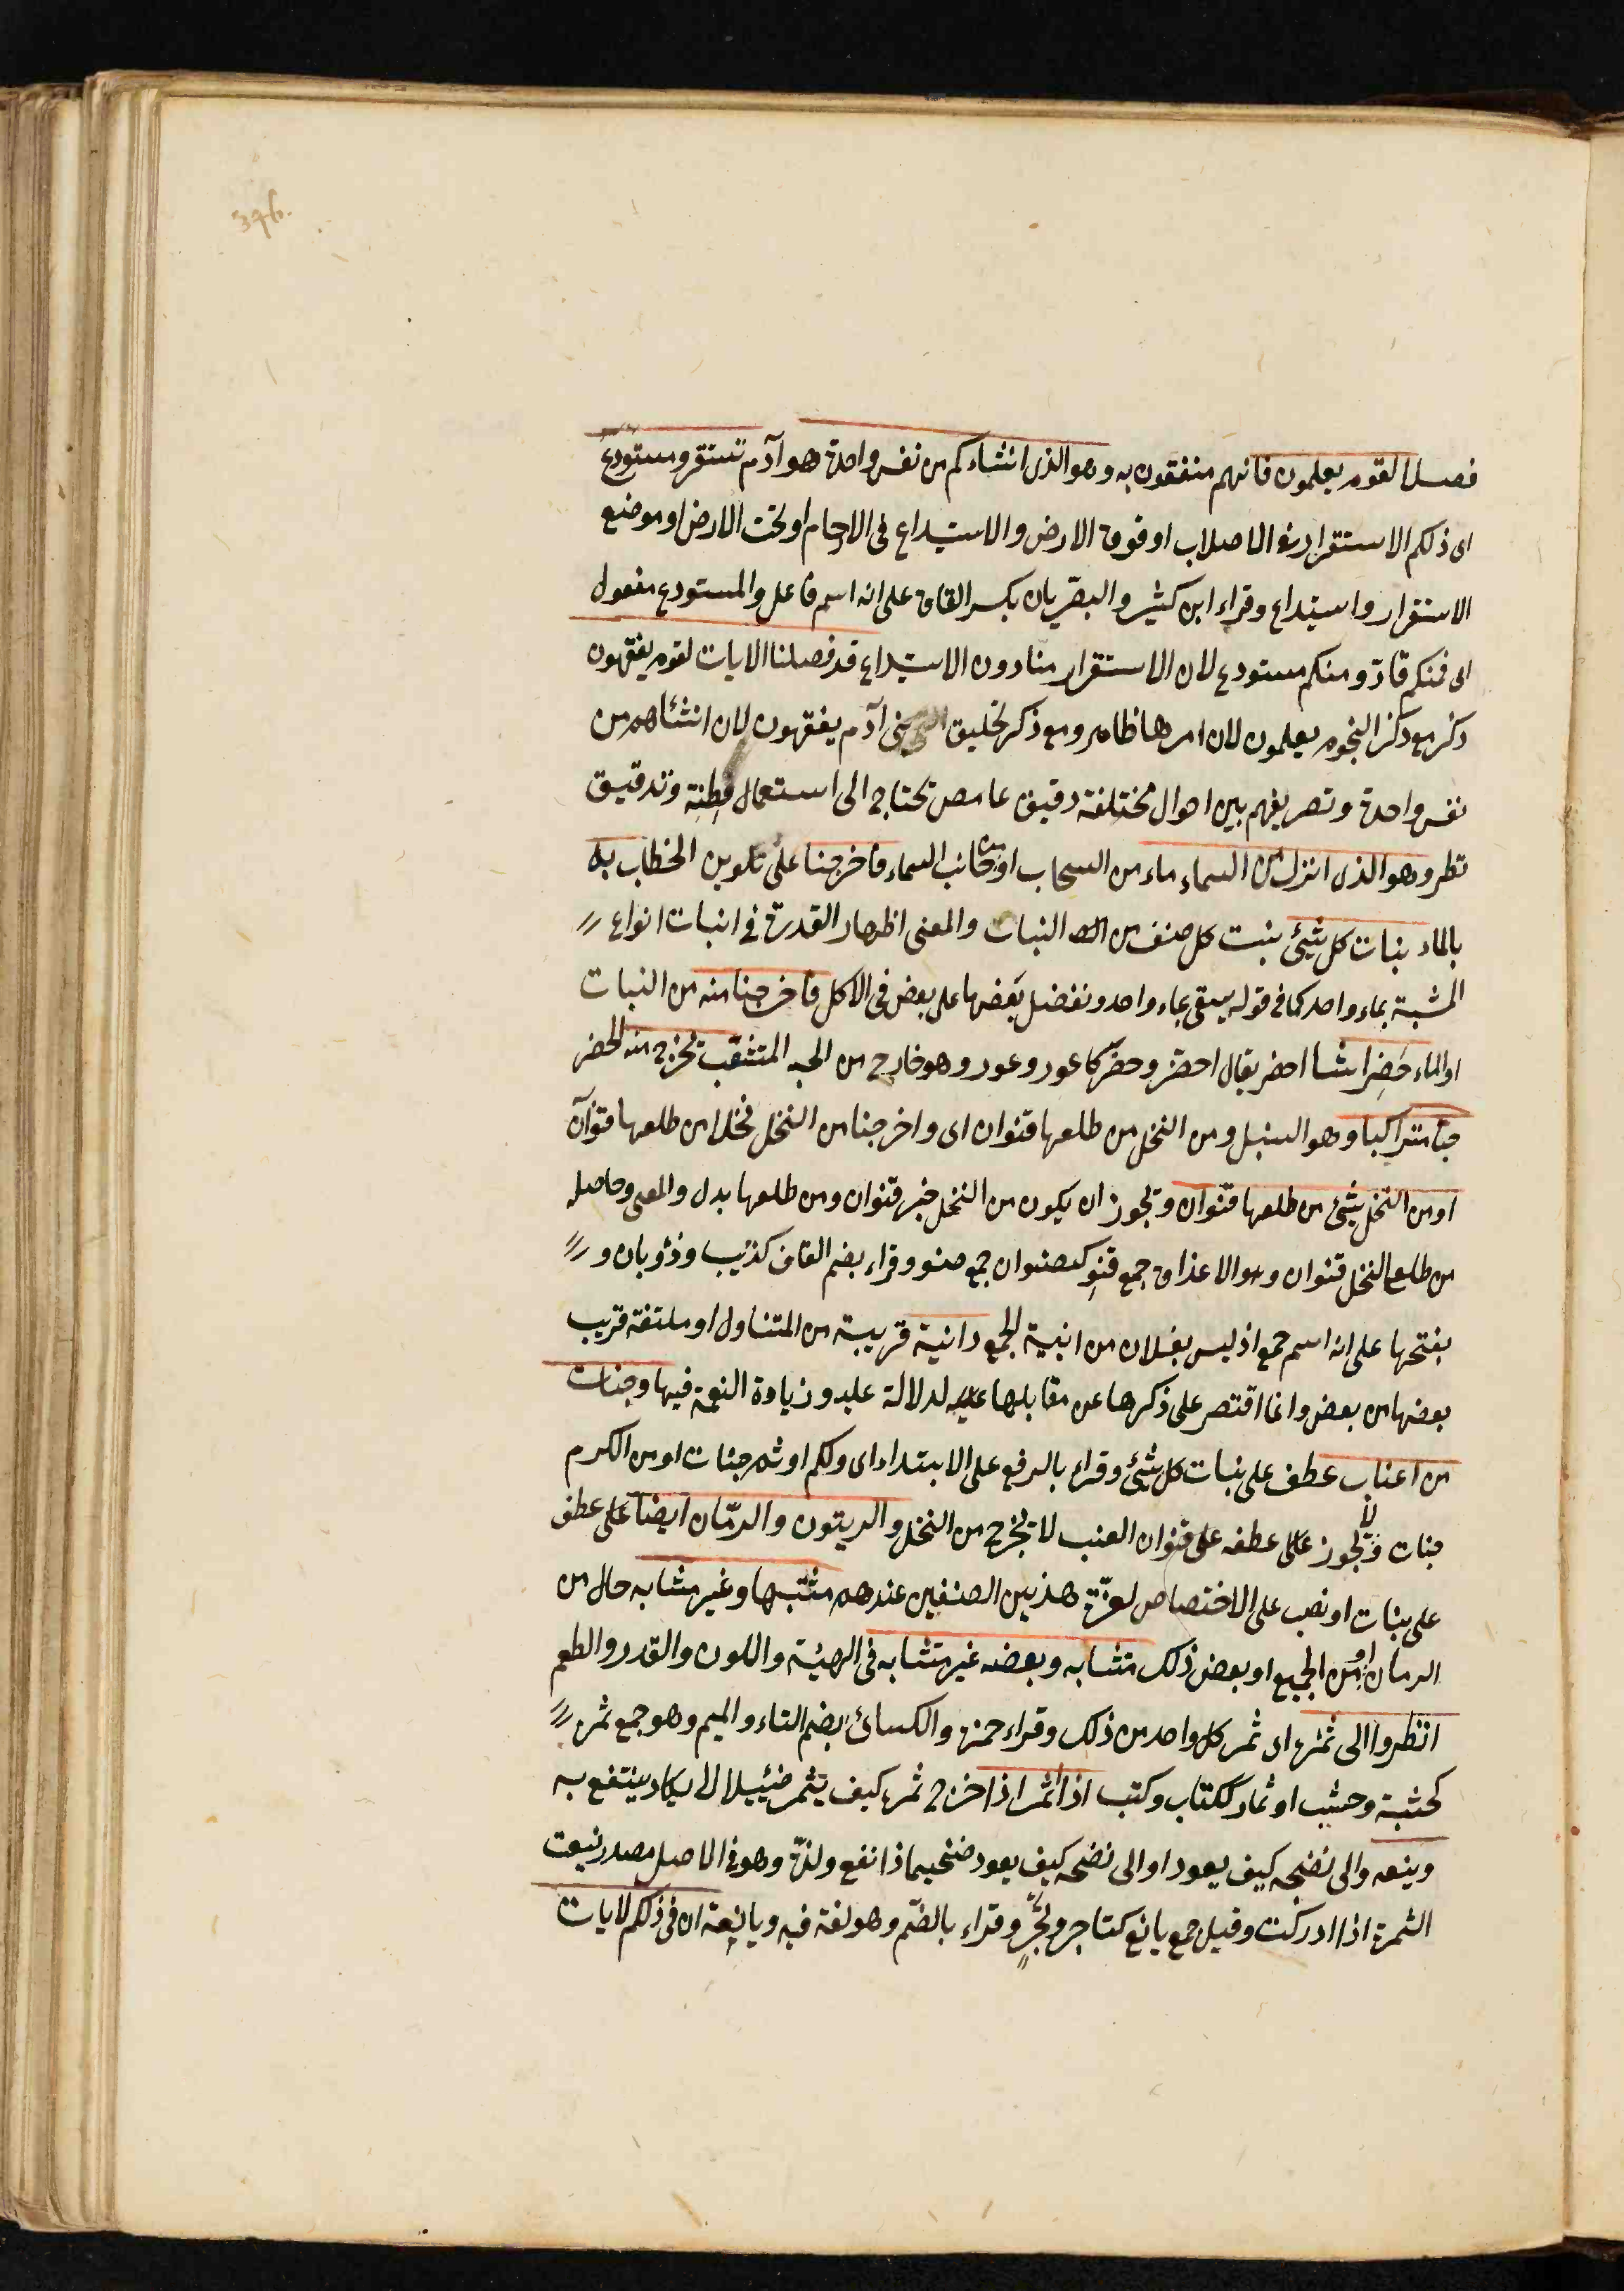 346.
فصلنا لقوم يعلمون فانهم منفقون به وهو الذى انشاءكم من نفس واحدة هو آدم فمستقر ومستودع
اى ذلكم الاستقرار فى الاصلاب او فوق الارض والاستيداع فى الارحام او تحت الارض او موضع
الاستقرار واستيداع وقراء ابن كثير والبصريان بكسر القاف على انه اسم فاعل والمستودع مفعول
اى فمنكم قارّ ومنكم مستودع لان الاستقرار منا دون الاستيداع قد فصلنا الايات لقوم يفقهون
ذكر مع ذكر النجوم يعلمون لان امرها ظاهر ومع ذكر تخليق بنى آدم يفقهون لان انشاهم من
نفس واحدة وتصريفهم بين احوال مختلفة دقيق غامض تحتاج الى استعمال فِطنِة وتدقيق
نظر وهو الذى انزل من السماء ماء من السحاب او من جانب السماء فاخرجنا على تلوين الخطاب به
بالماء نبات كل شئ نبت كل صنف من النبات والمعنى اظهار القدرة فى انبات انواع
المشبة بماء واحد كما فى قوله يسقى بماء واحد ونفضل بَعضها على بعض فى الاكل فاخرجنا منه من النبات
او الماء خَضِرا شيا اخضر يقال اخضر وخضر كاعور وعور وهو خارج من الحبه المتشعّب نخرج منه الخضر
حبا متراكبا وهو السنبل ومن النخل من طلعها قنوان اى واخرجنا من النخل نخلا من طلعها قنوان
او من النخل شئ من طلعها قنوان وتجوز ان يكون من النخل خبر قنوان ومن طلعها بدل والمعنى وحاصله
من طلع النخل قنوان وهو الاعذاق جمع قِنوِ كصنوان جمع صنو وقراء بضم القاف كذئب وذؤبان و
بفتحها على انه اسم جمع اذ ليس بفعلان من ابنية الجمع دانية قريبة من المتناول او ملتفة قريب
بعضها من بعض وانما اقتصر على ذكرها عن مقابلها لدلالة عليه وزيادة النعمة فيها وجنات
من اعناب عطف على نبات كل شئ وقراء بالرفع على الابتداء اى ولكم او ثمه جنات او من الكرم
جنات ولا تجوز عطفه على قنوان العنب لا تخرج من النخل والزيتون والرمّان ايضا على عطف
على نبات او نصب على الاختصاص لعزّة هذين الصنفين عندهم مشتبها وغير مشابه حال من
الرمان او من الجميع او بعض ذلك متشابه وبعضه غير متشابه فى الهيئة واللون والقدر والطعم
انظروا الى ثمره اى ثمر كل واحد من ذلك وقراء حمزة والكسائى بضم الثاء والميم وهو جمع ثمرة
كخشبة وخشب او ثمار ككتاب وكتب اذا اثمر اذا اخرج ثمره كيف يثمر ضئيلا لا يكاد ينتفع به
وينعه والى نضجه كيف يعود او الى نضجه كيف يعود ضخيما ذا نفع ولذّة وهو فى الاصل مصدر نيعت
الثمرة اذا ادركت وقيل جمع يانع كتاجر وتَجْرٍ وقراء بالضم وهو لغة فيه ويانعة ان فى ذلكم لايات